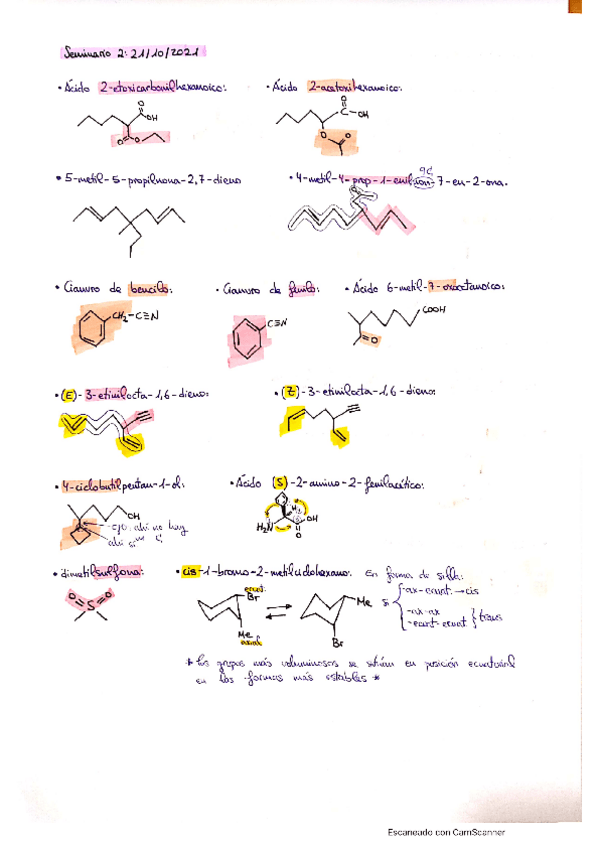 Seminario 2: 21/10/2021
• Ácido 2-etoxicarbonilhexanoico:
• Ácido 2-acetoxihexanoico:
O
OH
O
O
O
C-OH
O
O
• 5-metil-5-propilnona-2,7-dieno
• 4-metil-4-prop-1-enil non-7-en-2-ona.
9C
O
• Cianuro de bencilo:
• Cianuro de fenilo:
• Ácido 6-metil-7-oxooctanoico:
CH2-C≡N
C≡N
COOH
O
• (E)-3-etinilocta-1,6-dieno:
• (Z)-3-etinilocta-1,6-dieno:
• 4-ciclobutilpentan-1-ol:
• Ácido (S)-2-amino-2-fenilacético:
OH
ojo ahí no hay
ahí sí
H2N
H
OH
O
• dimetilsulfona:
• cis-1-bromo-2-metilciclohexano.
En forma de silla:
O
O
S
ecuat.
Br
Me
axial
Me
Br
si
-ax-ecuat. → cis
-ax-ax
-ecuat-ecuat
trans
* Los grupos más voluminosos se sitúan en posición ecuatorial
en las formas más estables *
Escaneado con CamScanner